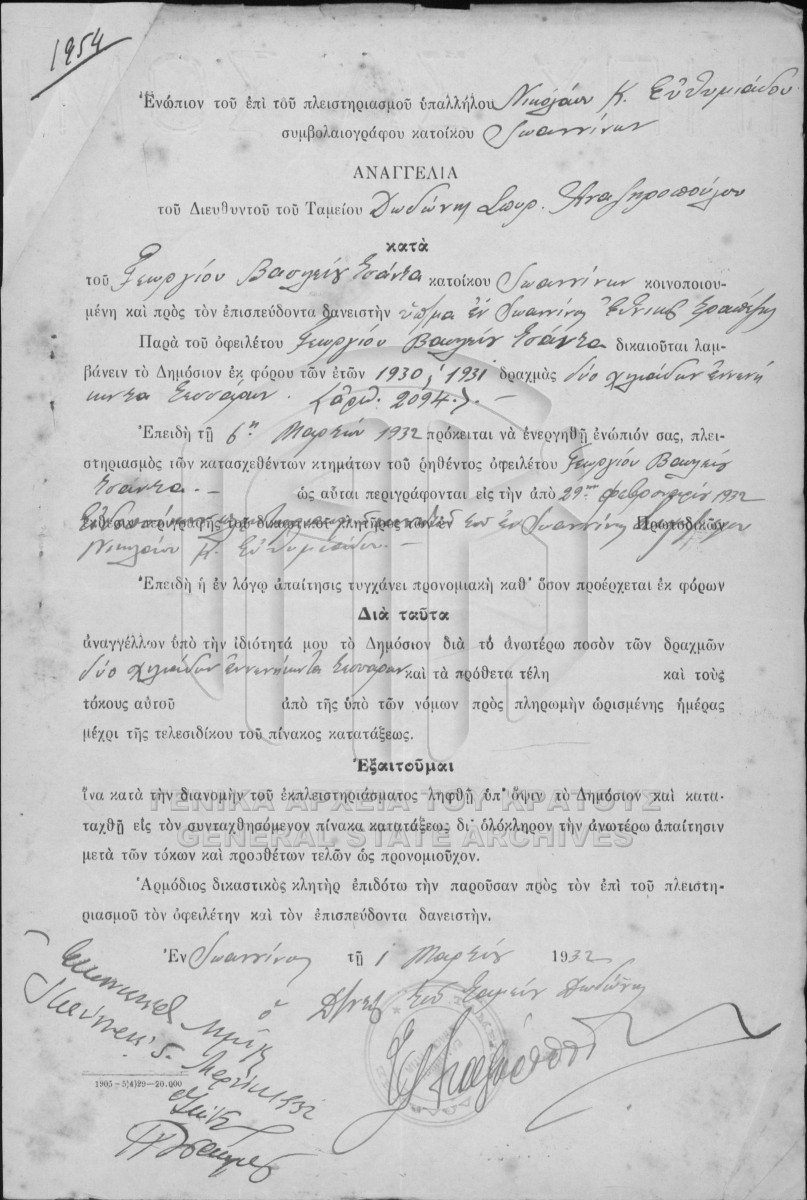 1954
Ἐνώπιον τοῦ ἐπὶ τοῦ πλειστηριασμοῦ ὑπαλλήλου Νικολάου Κ. Εὐθυμιάδου
συμβολαιογράφου κατοίκου Ἰωαννίνων
ΑΝΑΓΓΕΛΙΑ
τοῦ Διευθυντοῦ τοῦ Ταμείου Δωδώνης Σπυρ.
κατὰ
τοῦ Γεωργίου Βασιλείου Τσάντα κατοίκου Ἰωαννίνων κοινοποιου-
μένη καὶ πρὸς τὸν ἐπισπεύδοντα δανειστὴν ἐν Ἰωαννίνοις
Παρὰ τοῦ ὀφειλέτου Γεωργίου Βασιλείου Τσάντα δικαιοῦται λαμ-
βάνειν τὸ Δημόσιον ἐκ φόρου τῶν ἐτῶν 1930, 1931 δραχμὰς δύο χιλιάδων ἐννενή
κοντα τεσσάρων. (ἀρ. 2094). —
Ἐπειδὴ τῇ 6ῃ Μαρτίου 1932 πρόκειται νὰ ἐνεργηθῇ ἐνώπιόν σας, πλει-
στηριασμὸς τῶν κατασχεθέντων κτημάτων τοῦ ῥηθέντος ὀφειλέτου Γεωργίου Βασιλείου
Τσάντα. — ὡς αὗται περιγράφονται εἰς τὴν ἀπὸ 29ης Φεβρουαρίου 1932
ἔκθεσιν περιγραφῆς τοῦ δικαστικοῦ κλητῆρος τῶν ἐν τοῦ ἐν Ἰωαννίνοις Πρωτοδικῶν
Νικολάου Κ. Εὐθυμιάδου. —
Ἐπειδὴ ἡ ἐν λόγῳ ἀπαίτησις τυγχάνει προνομιακὴ καθ' ὅσον προέρχεται ἐκ φόρων
Διὰ ταῦτα
ἀναγγέλλων ὑπὸ τὴν ἰδιότητά μου τὸ Δημόσιον διὰ τὸ ἀνωτέρω ποσὸν τῶν δραχμῶν
δύο χιλιάδων ἐννενήκοντα τεσσάρων καὶ τὰ πρόθετα τέλη καὶ τοὺς
τόκους αὐτοῦ ἀπὸ τῆς ὑπὸ τῶν νόμων πρὸς πληρωμὴν ὡρισμένης ἡμέρας
μέχρι τῆς τελεσιδίκου τοῦ πίνακος κατατάξεως.
Ἐξαιτοῦμαι
ἵνα κατὰ τὴν διανομὴν τοῦ ἐκπλειστηριάσματος ληφθῇ ὑπ' ὄψιν τὸ Δημόσιον καὶ κατα-
ΓΕΝΙΚΑ ΑΡΧΕΙΑ ΤΟΥ ΚΡΑΤΟΥΣ
ταχθῇ εἰς τὸν συνταχθησόμενον πίνακα κατατάξεως δι' ὁλόκληρον τὴν ἀνωτέρω ἀπαίτησιν
GENERAL STATE ARCHIVES
μετὰ τῶν τόκων καὶ προσθέτων τελῶν ὡς προνομιοῦχον.
Ἁρμόδιος δικαστικὸς κλητὴρ ἐπιδότω τὴν παροῦσαν πρὸς τὸν ἐπὶ τοῦ πλειστη-
ριασμοῦ τὸν ὀφειλέτην καὶ τὸν ἐπισπεύδοντα δανειστήν.
Ἐν Ἰωαννίνοις τῇ 1 Μαρτίου 1932
ὁ Δ/ντὴς τοῦ Ταμείου Δωδώνης
5 Μαρτίου 1932
1905—5(4)29—20.000